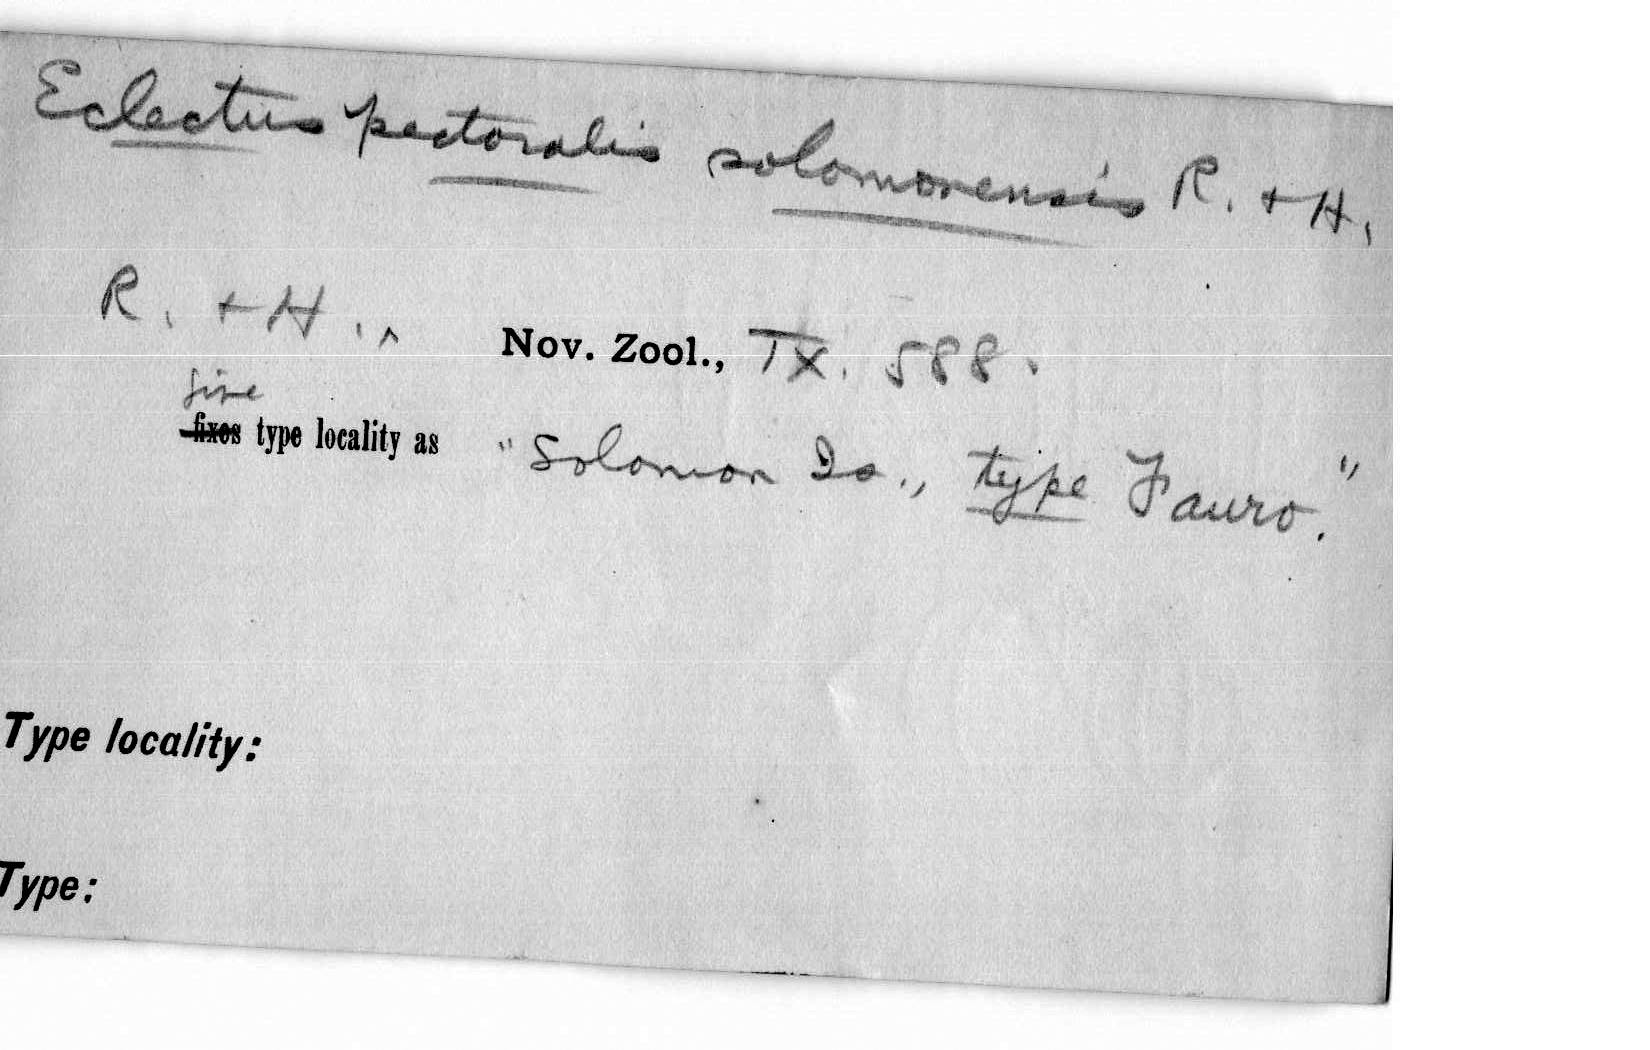 Eclectus pectoralis solomonensis R. + H.
R. + H., ^ Nov. Zool., IX. 588.
give
fixes type locality as "Solomon Is., type Fauro."
Type locality:
Type: